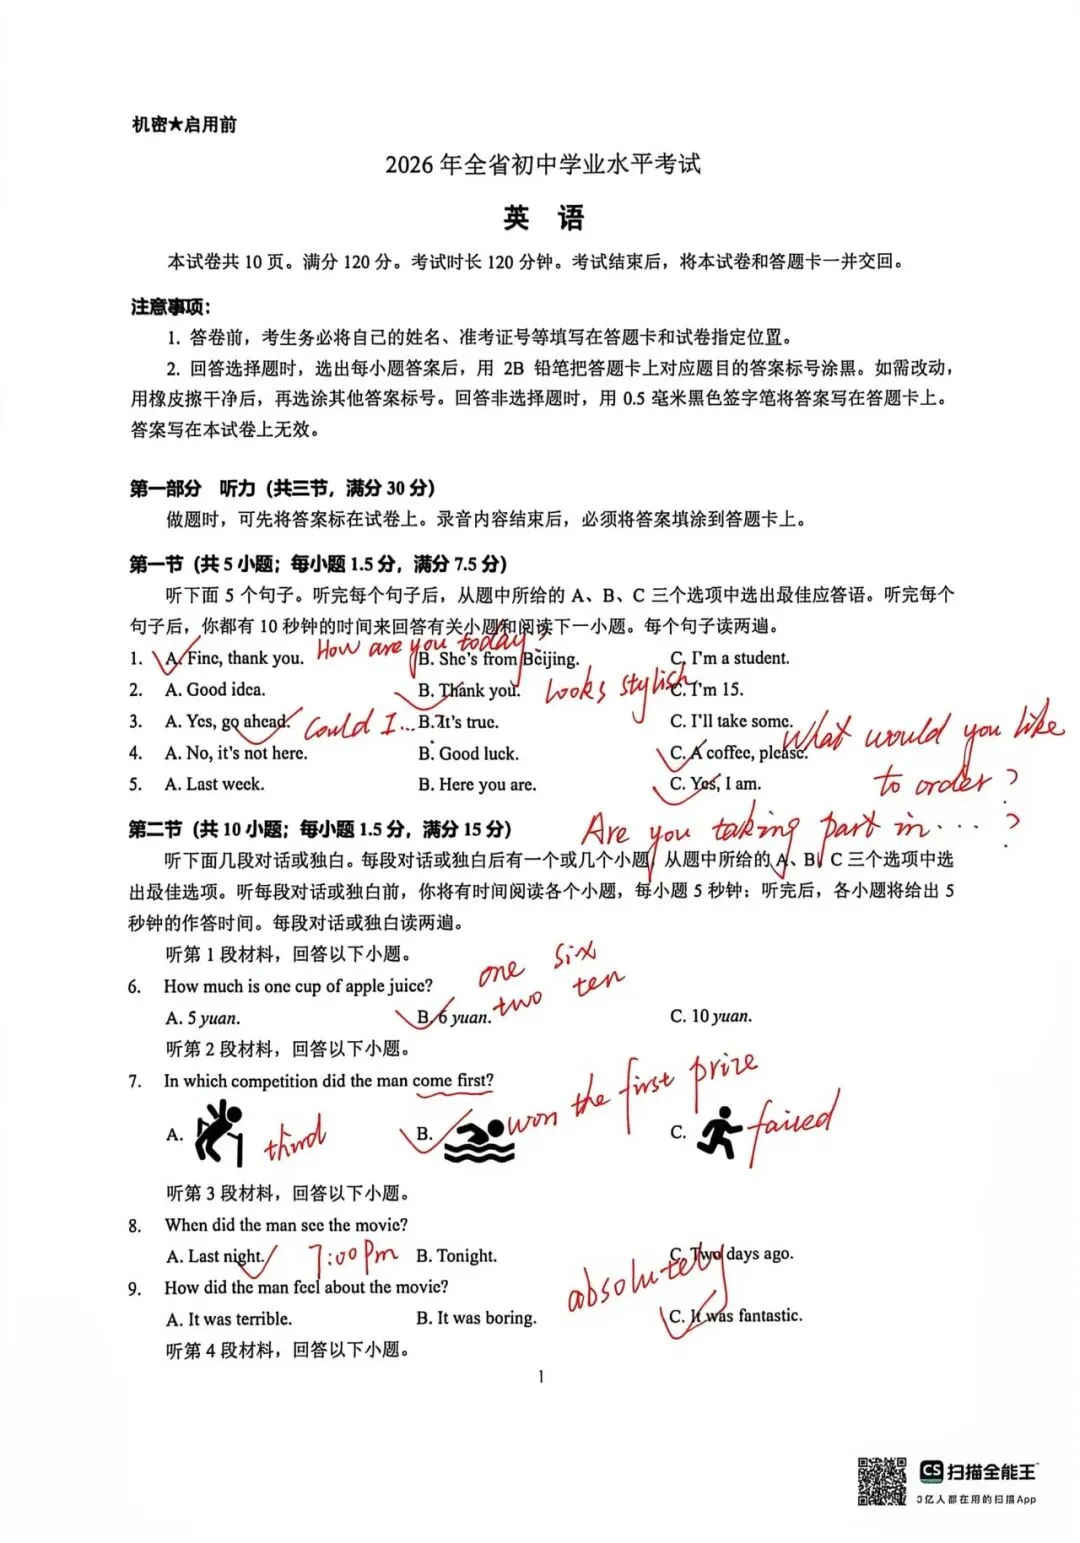 机密★启用前
2026 年全省初中学业水平考试
英 语
本试卷共 10 页。满分 120 分。考试时长 120 分钟。考试结束后，将本试卷和答题卡一并交回。
注意事项：
1. 答卷前，考生务必将自己的姓名、准考证号等填写在答题卡和试卷指定位置。
2. 回答选择题时，选出每小题答案后，用 2B 铅笔把答题卡上对应题目的答案标号涂黑。如需改动，
用橡皮擦干净后，再选涂其他答案标号。回答非选择题时，用 0.5 毫米黑色签字笔将答案写在答题卡上。
答案写在本试卷上无效。
第一部分 听力（共三节，满分 30 分）
做题时，可先将答案标在试卷上。录音内容结束后，必须将答案填涂到答题卡上。
第一节（共 5 小题；每小题 1.5 分，满分 7.5 分）
听下面 5 个句子。听完每个句子后，从题中所给的 A、B、C 三个选项中选出最佳应答语。听完每个
句子后，你都有 10 秒钟的时间来回答有关小题和阅读下一小题。每个句子读两遍。
How are you today?
1. A. Fine, thank you. B. She's from Beijing. C. I'm a student.
2. A. Good idea. B. Thank you. looks stylish C. I'm 15.
3. A. Yes, go ahead. Could I...? B. It's true. C. I'll take some.
What would you like
4. A. No, it's not here. B. Good luck. C. A coffee, please.
to order?
5. A. Last week. B. Here you are. C. Yes, I am.
Are you taking part in...?
第二节（共 10 小题；每小题 1.5 分，满分 15 分）
听下面几段对话或独白。每段对话或独白后有一个或几个小题，从题中所给的 A、B、C 三个选项中选
出最佳选项。听每段对话或独白前，你将有时间阅读各个小题，每小题 5 秒钟；听完后，各小题将给出 5
秒钟的作答时间。每段对话或独白读两遍。
听第 1 段材料，回答以下小题。
one six
6. How much is one cup of apple juice?
two ten
A. 5 yuan. B. 6 yuan. C. 10 yuan.
听第 2 段材料，回答以下小题。
7. In which competition did the man come first?
A. third B. won the first prize C. failed
听第 3 段材料，回答以下小题。
8. When did the man see the movie?
A. Last night. 7:00 pm B. Tonight. C. Two days ago.
9. How did the man feel about the movie?
absolutely
A. It was terrible. B. It was boring. C. It was fantastic.
听第 4 段材料，回答以下小题。
1
CS 扫描全能王
3亿人都在用的扫描App